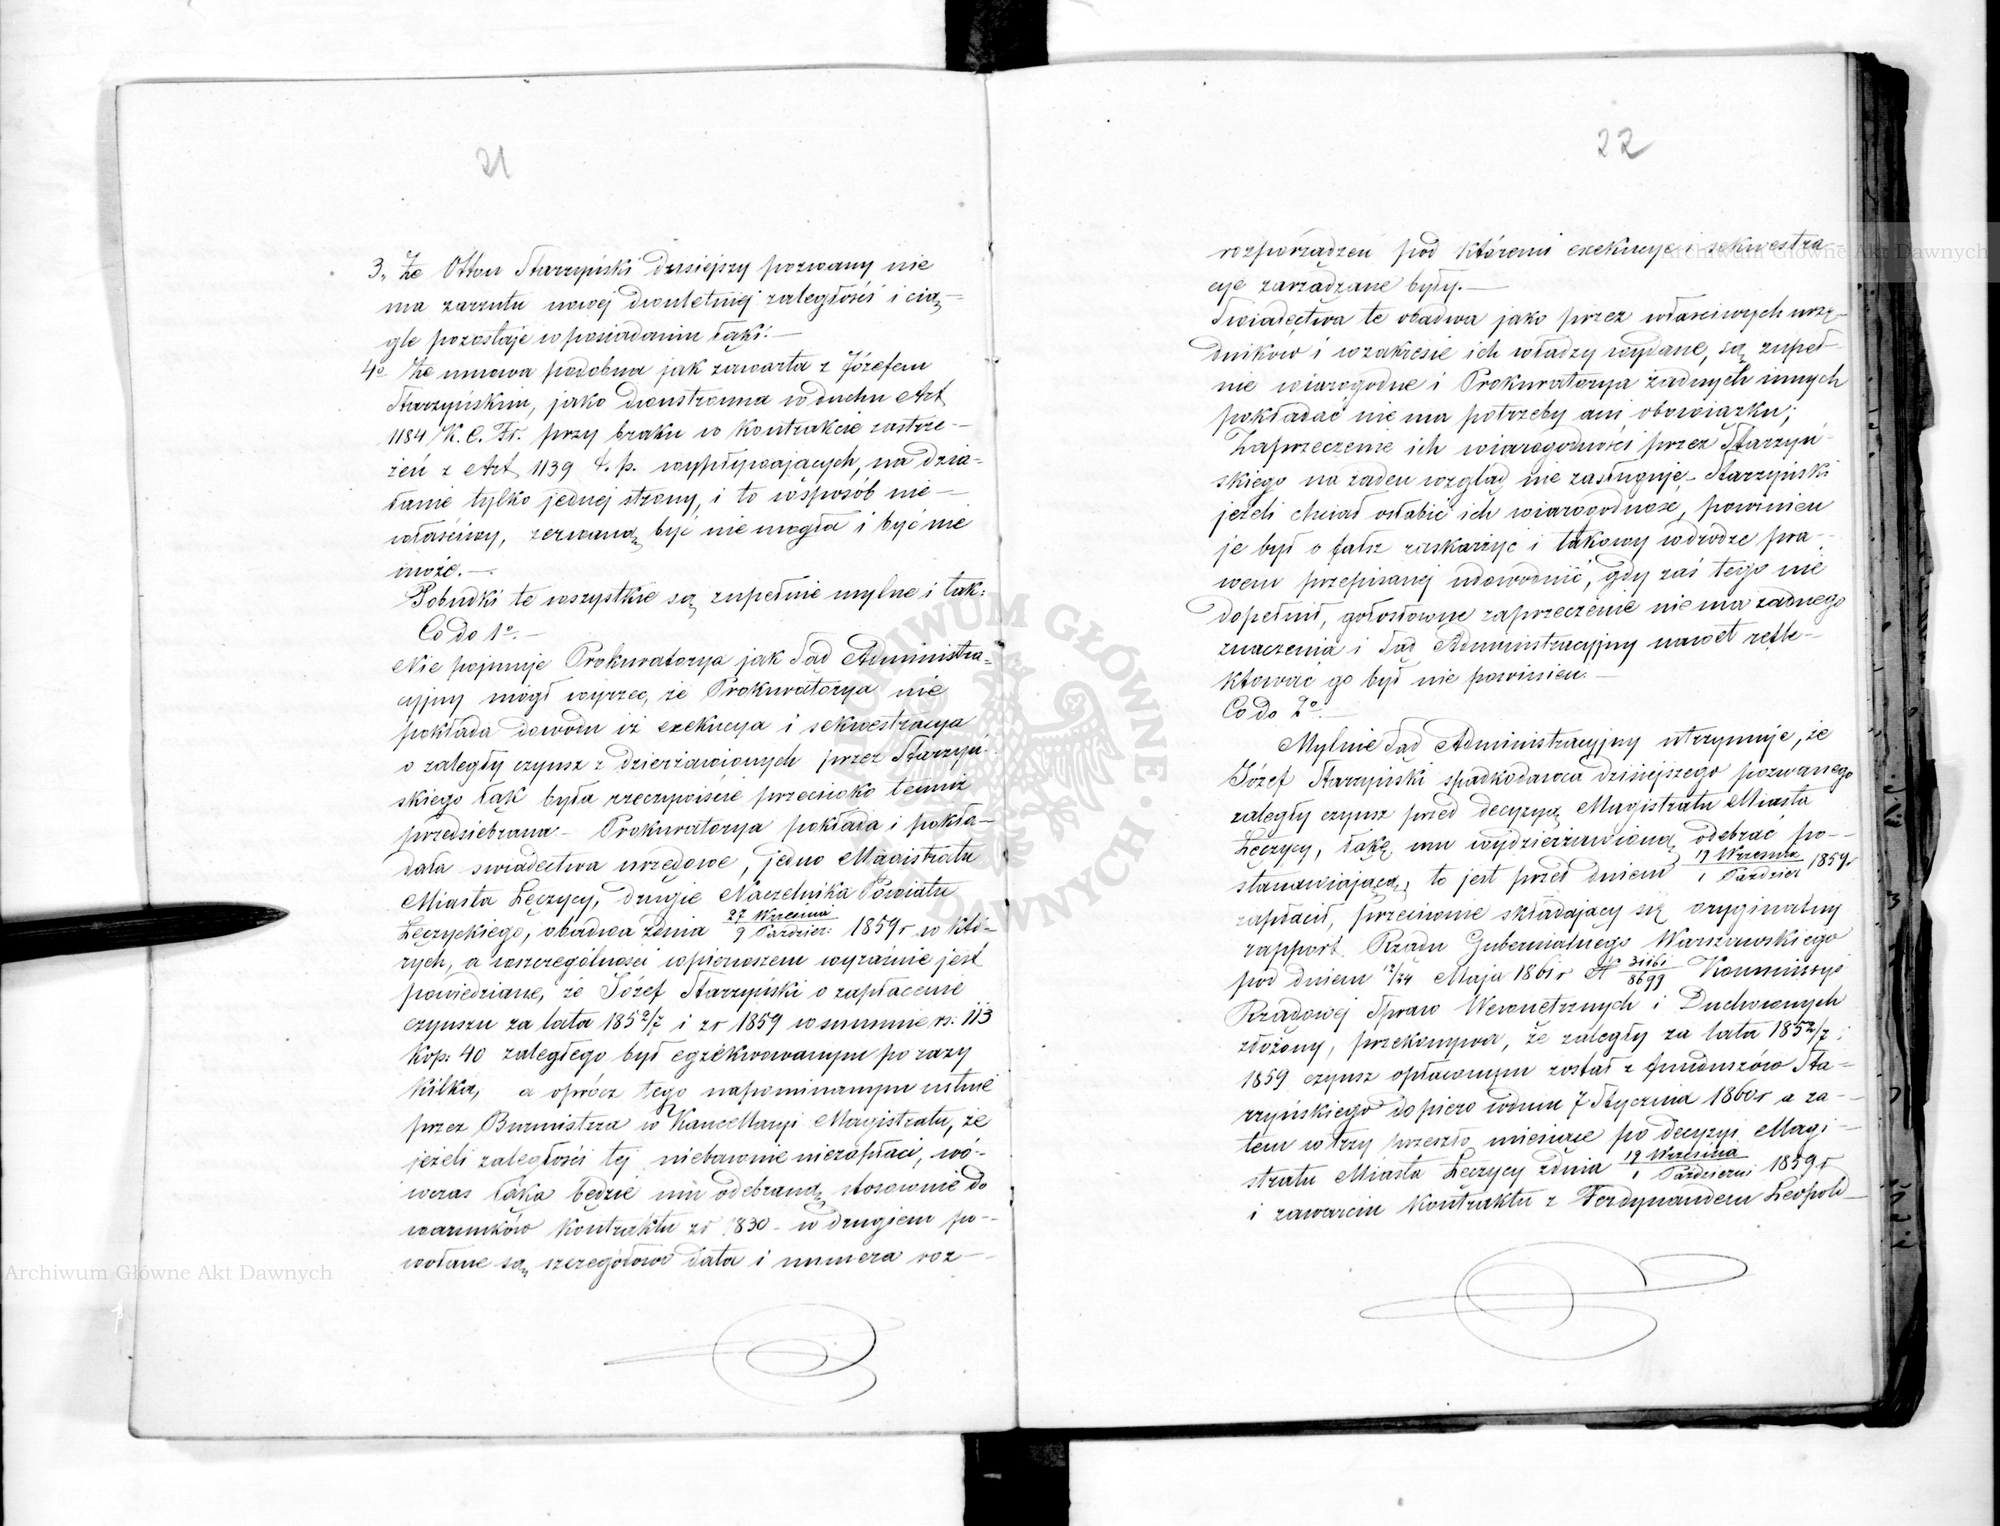 21
3, Że Otton Starzyński dzisiejszy pozwany nie
ma zarzutu nowej dwuletniej zaległości i cią–
gle pozostaje w posiadaniu łąki.–
4o Że umowa podobna jak zawarta z Józefem
Starzyńskim, jako dwustronna w duchu Art
1184 K. C. Fr. przy braku w Kontrakcie zastrze–
żeń z Art. 1139 t. p. wypływających, na dzia–
łanie tylko jednej strony, i to w sposób nie–
właściwy, zerwaną być nie mogła i być nie
może.–
Pobudki te wszystkie są zupełnie mylne i tak:
Co do 1o.–
Nie pojmuje Prokuratorya jak Sąd Administra–
cyjny mógł wyrzec, że Prokuratorya nie
pokłada dowodu iż exekucya i sekwestracya
o zaległy czynsz z dzierżawionych przez Starzyń–
skiego łąk była rzeczywiście przeciwko temuż
przedsiebrana – Prokuratorya pokłada i pokła–
dała swiadectwa urzędowe, jedno Magistratu
Miasta Łęczycy, drugie Naczelnika Powiatu
Łęczyckiego, obadwa z dnia 27 Września / 9 Paździer: 1859 r w któ–
rych, a w szczególności w pierwszem wyraźnie jest
powiedziane, że Józef Starzyński o zapłacenie
czynszu za lata 1852/7 i zr 1859 w summie rs: 113
kop: 40 zaległego był egzekwowanym po razy
kilka, a oprócz tego napominanym ustnie
przez Burmistrza w Kancellaryi Magistratu, że
jeżeli zaległości tej niebawnie niezapłaci, wó–
wczas łąka będzie mu odebraną stosownie do
warunków Kontraktu zr 1830 – w drugiem po–
wołane są szczegółowo data i numera roz–
22
rozporządzeń pod któremi exekucye i sekwestra–
cye zarządzane były.–
Świadectwa te obadwa jako przez właściwych urzę–
dników i w zakresie ich władzy wydane, są zupeł–
nie wiarogodne i Prokuratorya żadnych innych
pokładać nie ma potrzeby ani obowiązku;
Zaprzeczenie ich wiarogodności przez Starzyń–
skiego na żaden wzgląd nie zasługuje – Starzyński
jeżeli chciał osłabić ich wiarogodność, powinien
je był o fałsz zaskarżyć i takowy w drodze pra–
wem przepisanej udowodnić, gdy zaś tego nie
dopełnił, gołosłowne zaprzeczenie nie ma żadnego
znaczenia i Sąd Administracyjny nawet refle–
ktować go był nie powinien.–
Co do 2o.–
Mylnie Sąd Administracyjny utrzymuje, że
Józef Starzyński spadkodawca dzisiejszego pozwanego
zaległy czynsz przed decyzyą Magistratu Miasta
Łęczycy, łąkę mu wydzierżawioną odebrać po–
stanawiającą, to jest przed dniem 19 Września / 1 Paździer 1859 r
zapłacił, przeciwnie składający się oryginalny
rapport Rządu Gubernialnego Warszawskiego
pod dniem 12/24 Maja 1861 r N 31161 / 8699 Kommissyi
Rządowej Spraw Wewnętrznych i Duchownych
złożony, przekonywa, że zaległy za lata 1852/7 i
1859 czynsz opłaconym został z funduszów Sta–
rzyńskiego dopiero w dniu 7 Stycznia 1860 r a za–
tem w trzy przeszło miesiące po decyzyi Magi–
stratu Miasta Łęczycy z dnia 19 Września / 1 Październi 1859 r
i zawarciu Kontraktu z Ferdynandem Leopold–
Archiwum Główne Akt Dawnych
Archiwum Główne Akt Dawnych
ARCHIWUM GŁÓWNE AKT DAWNYCH